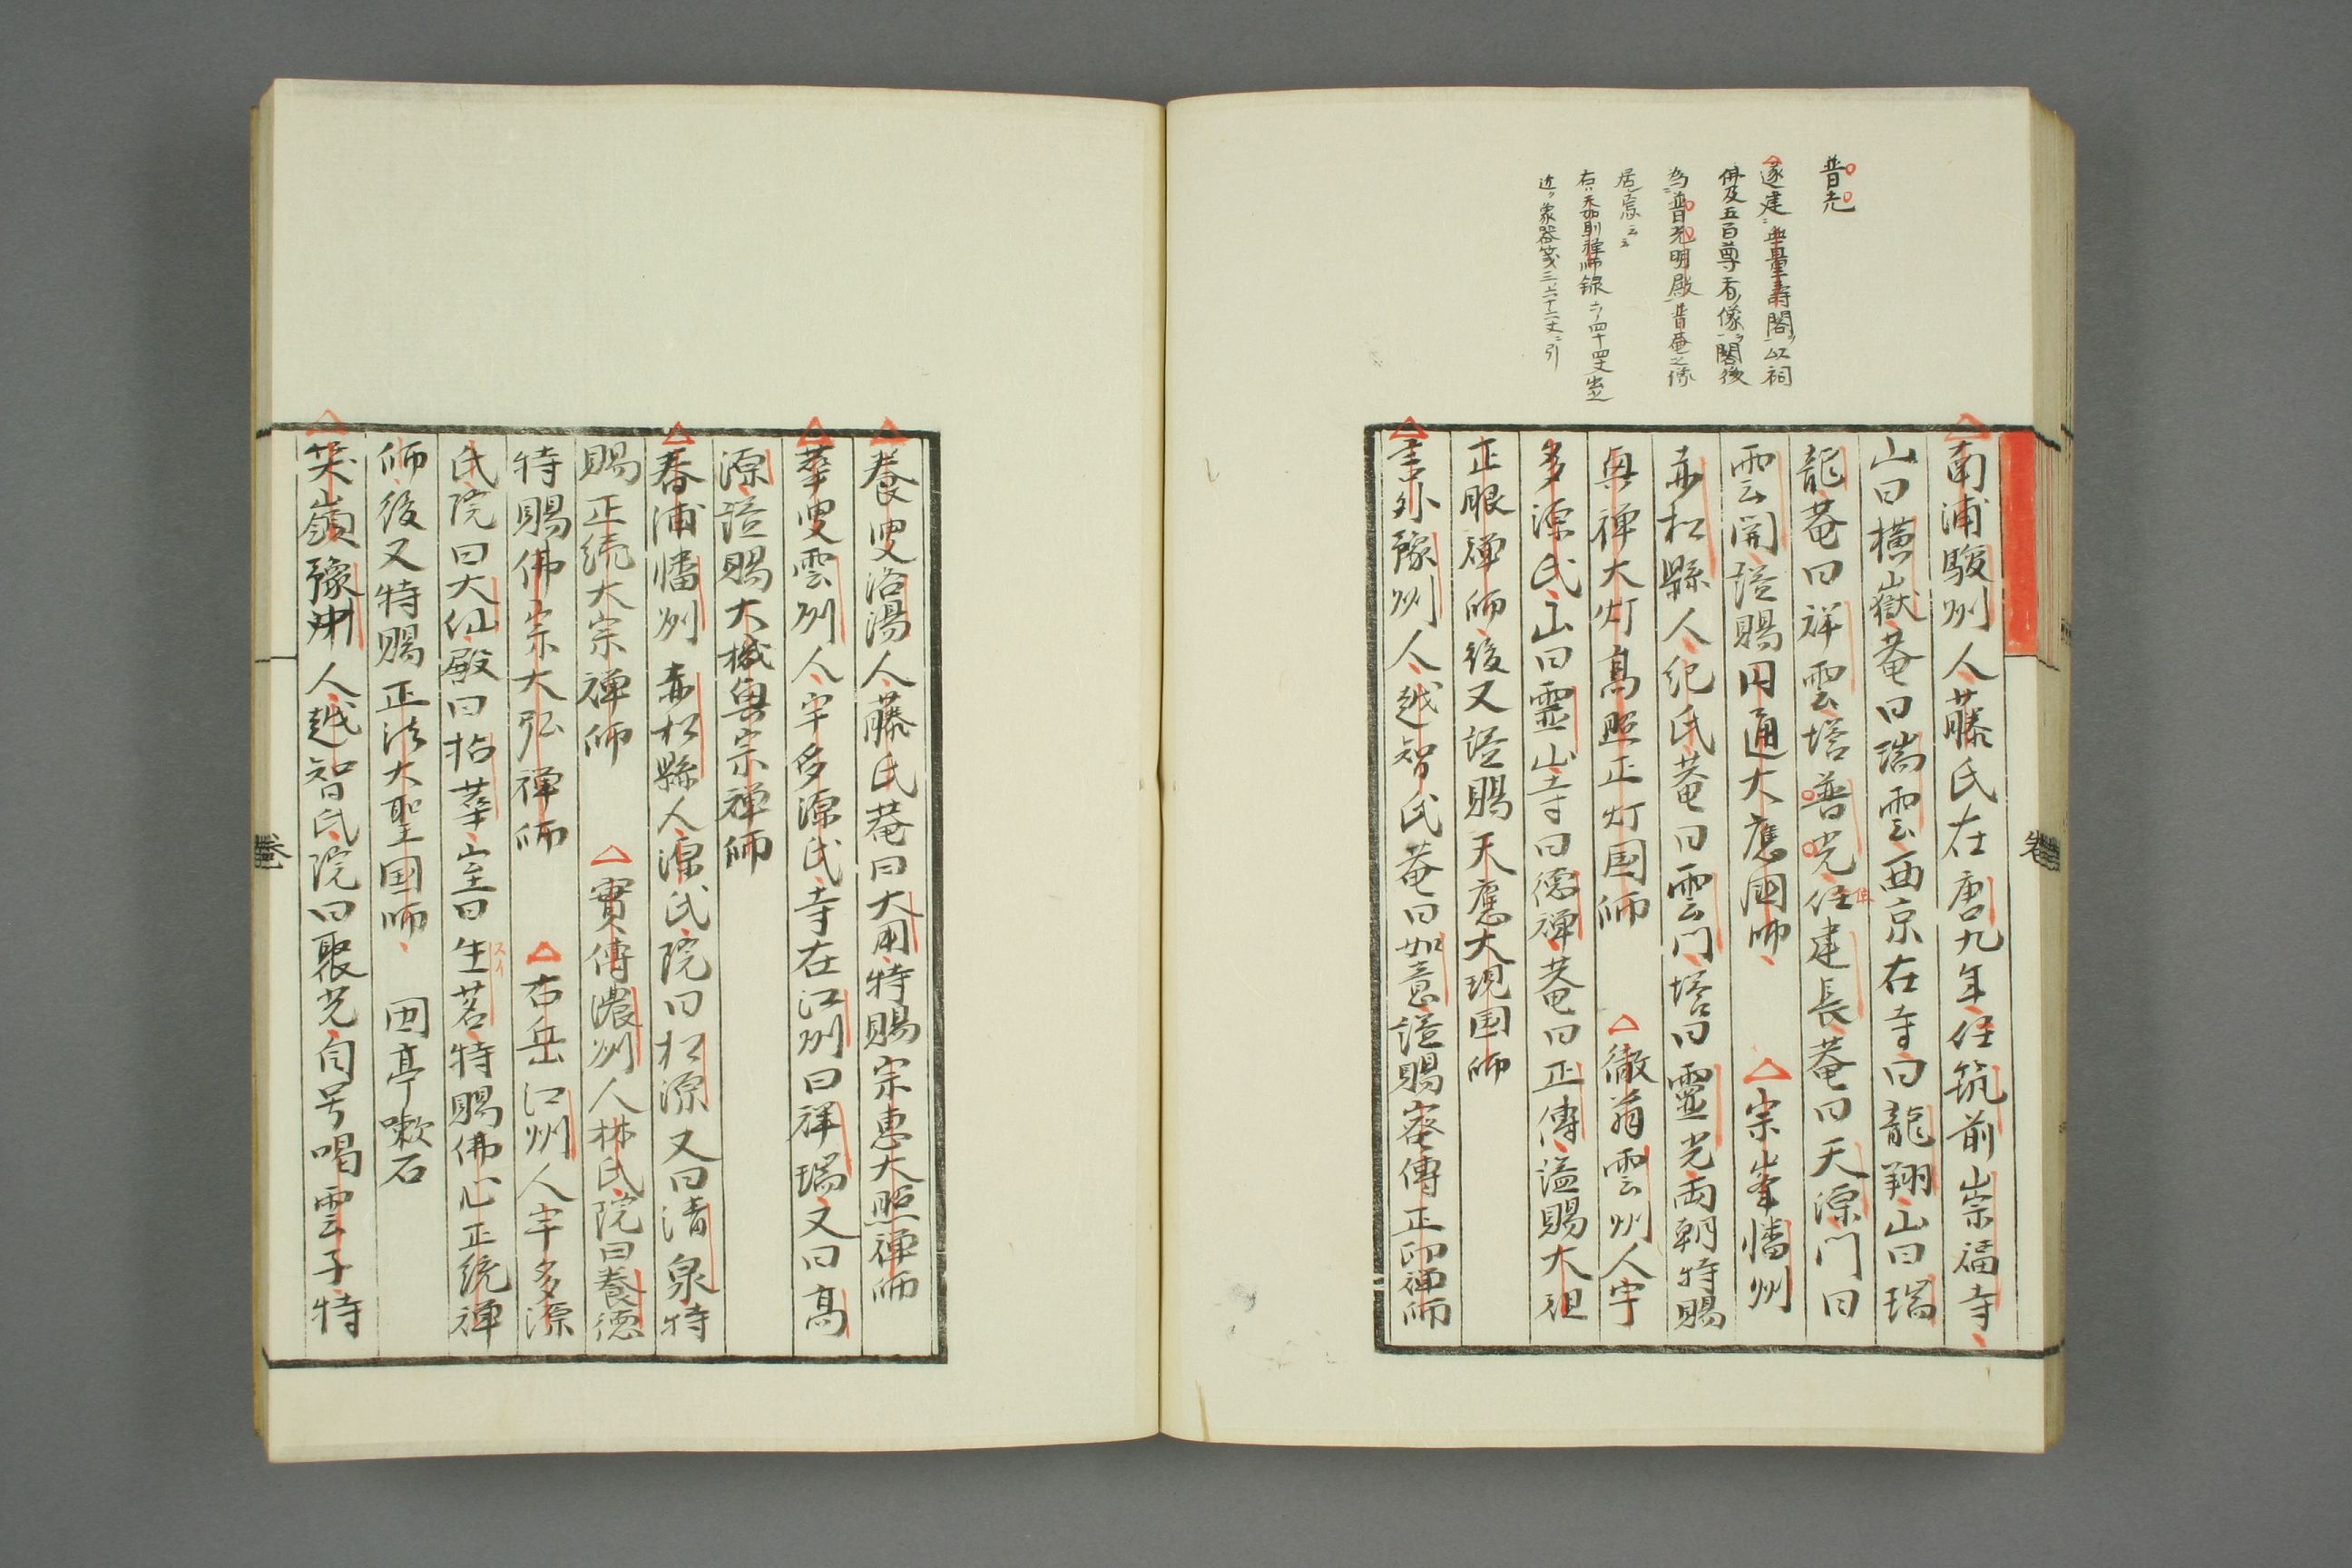 普光
遂建ニ無量壽閣ヲ以祠
佛及五百尊者像ヲ閣後
為ニ普光明殿普菴之像
居焉云云
右ハ天如則禅師録六ノ四十四丈出
近ク象器箋三上十二丈ニ引
南浦駿州人藤氏在唐九年住筑前崇福寺
山曰横嶽菴曰瑞雲西京在寺曰龍翔山曰瑞
龍菴曰祥雲塔普光住建長菴曰天源門曰
雲関諡賜円通大應國師 宗峯播州
赤松縣人紀氏菴曰雲門塔曰靈光両朝特賜
興禅大灯高照正灯国師 徹翁雲州人宇
多源氏山曰靈山寺曰徳禅菴曰正傳諡賜大祖
正眼禅師後又諡賜天應大現国師
言外豫州人越智氏菴曰如意諡賜密傳正印禅師
養叟洛陽人藤氏菴曰大用特賜宗恵大照禅師
華叟雲州人宇多源氏寺在江州曰祥瑞又曰高
源諡賜大機興宗禅師
春浦播州赤松縣人源氏院曰松源又曰清泉特
賜正続大宗禅師 實傳濃州人林氏院曰養徳
特賜佛宗大弘禅師 古岳江州人宇多源
氏院曰大仙殿曰拈華室曰生苕特賜佛心正統禅
師後又特賜正法大聖国師 因亭嗽石
笑嶺豫州人越智氏院曰聚光自号喝雲子特